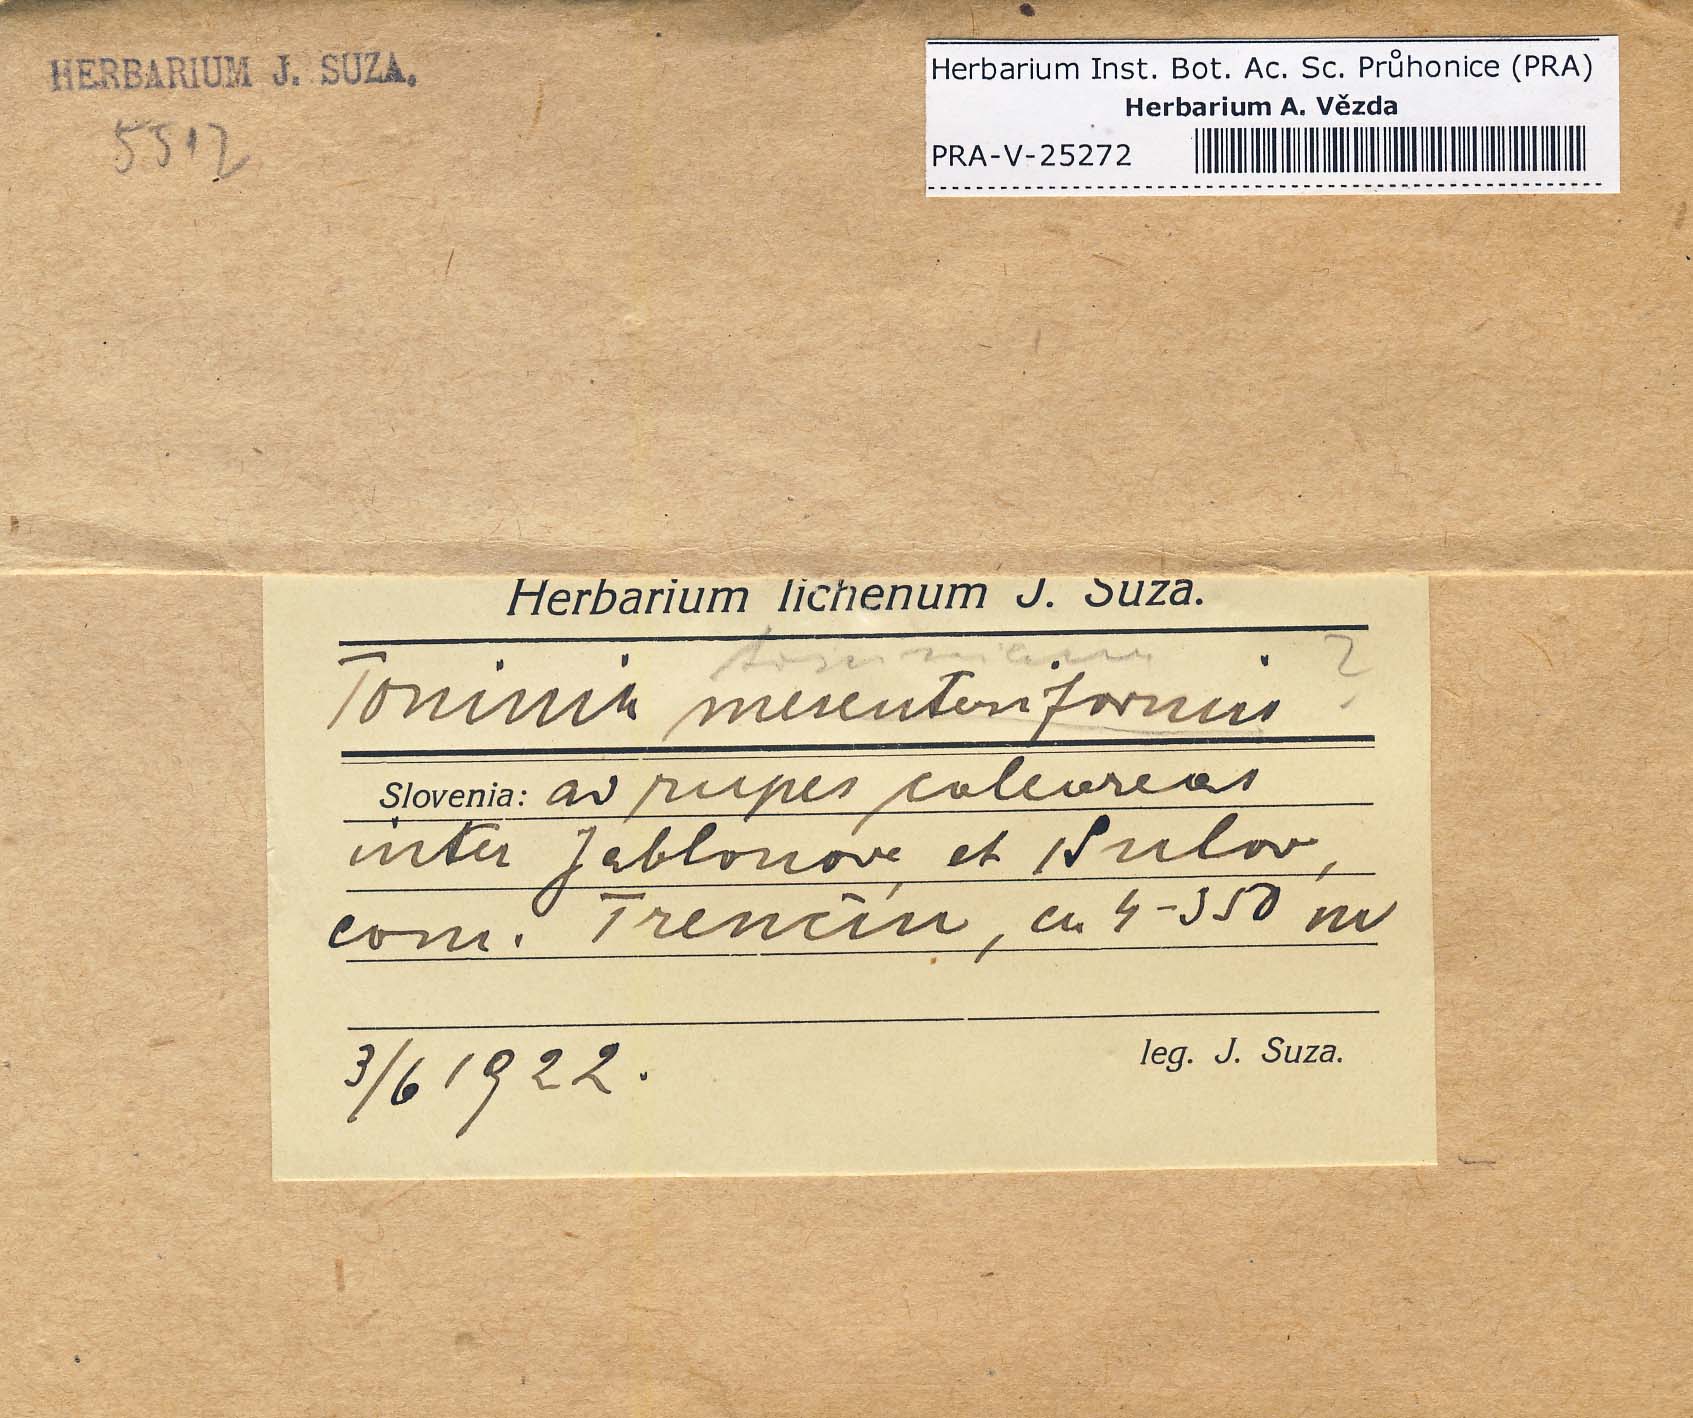 HERBARIUM J. SUZA.
5512
Herbarium Inst. Bot. Ac. Sc. Průhonice (PRA)
Herbarium A. Vězda
PRA-V-25272
Herbarium lichenum J. Suza.
?
Toninia mesenteriformis
Slovenia: ad rupes calcareas
inter Jablonové et Sulov,
com. Trenčín, ca 4-350 m
3/6 1922.
leg. J. Suza.